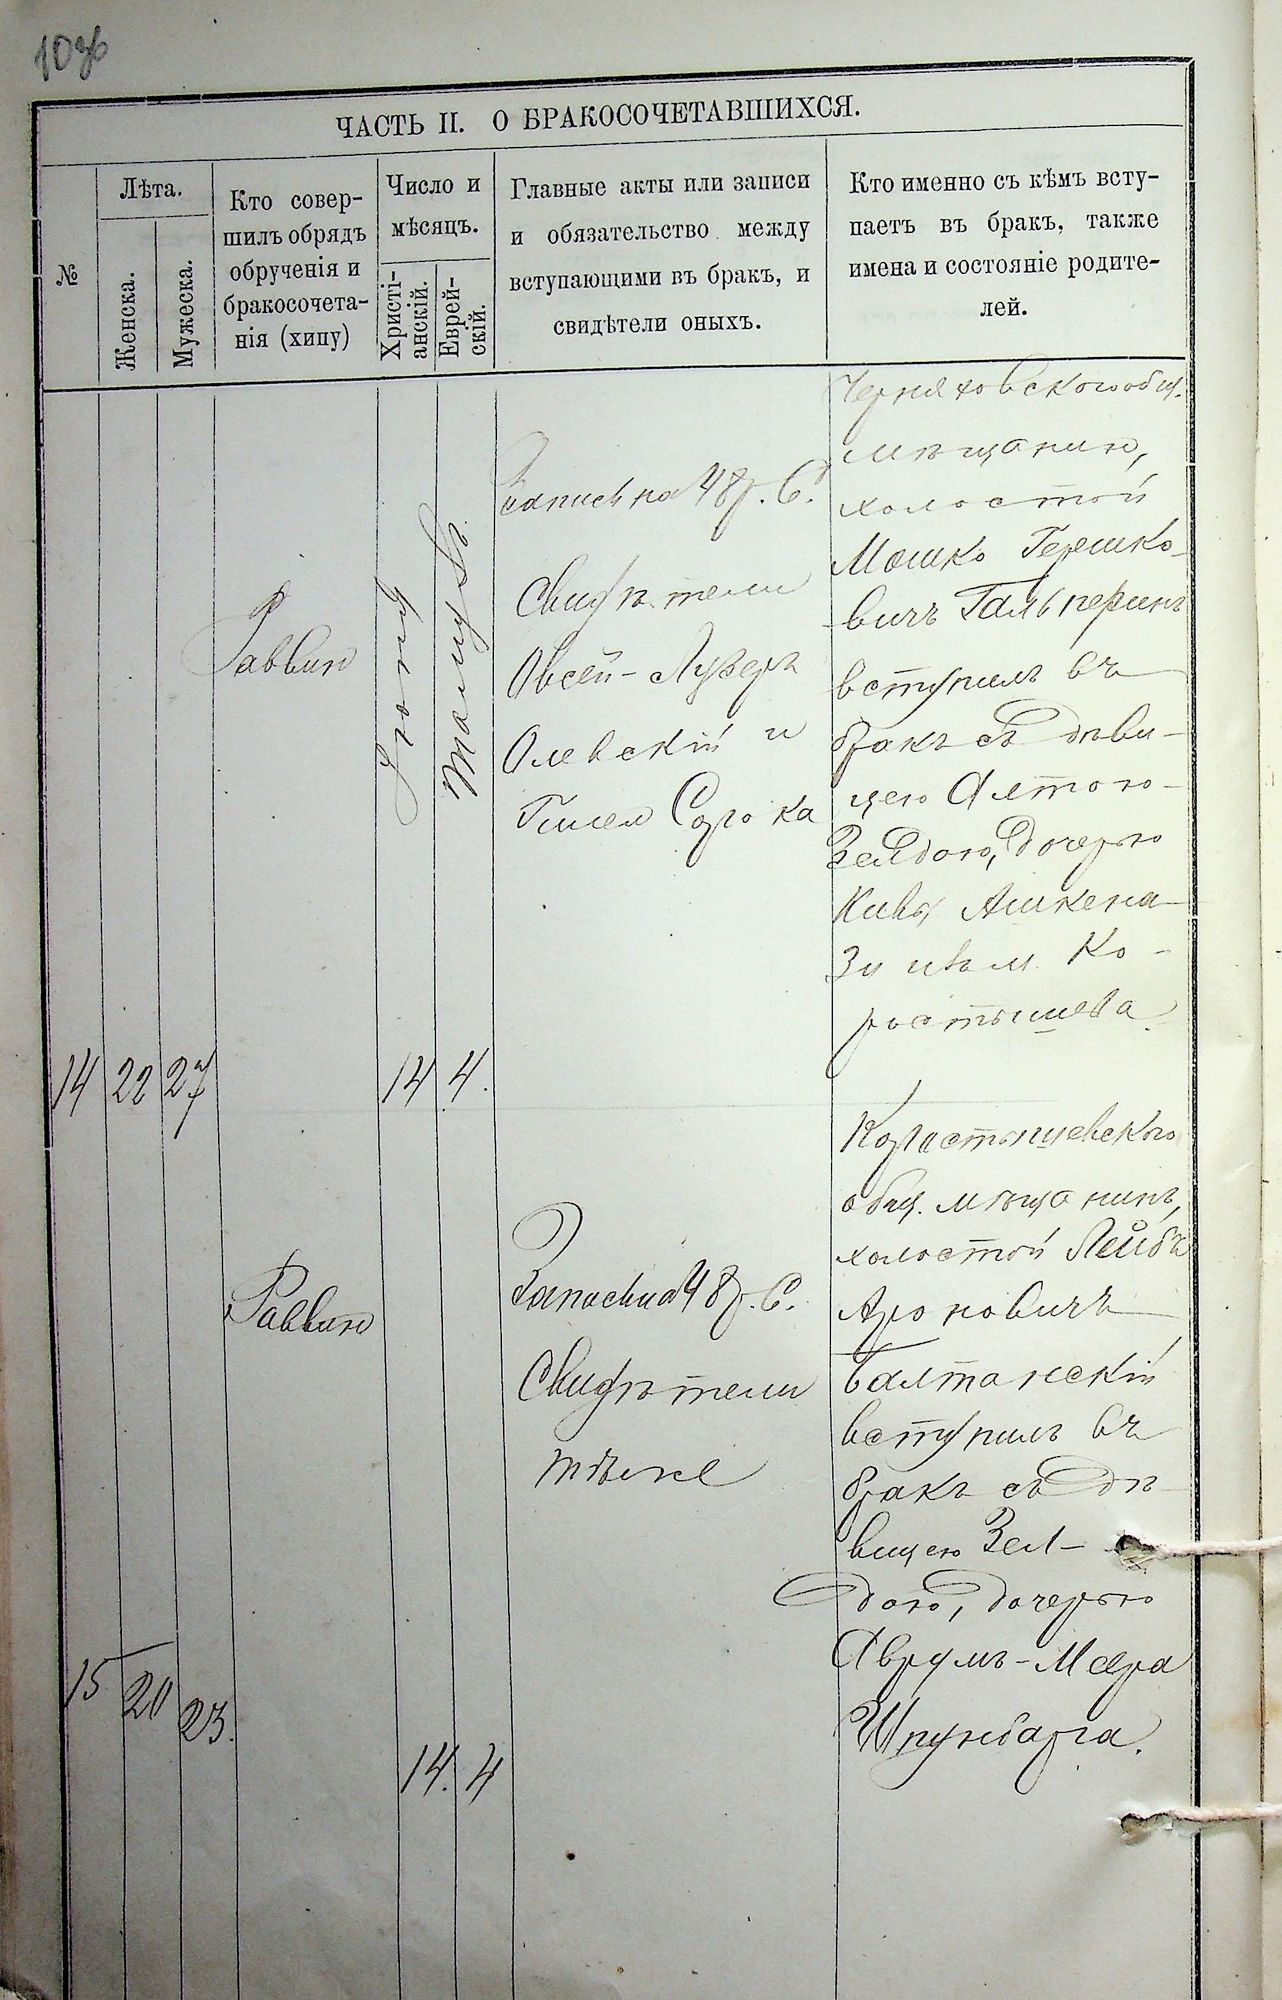 103б
ЧАСТЬ II. О БРАКОСОЧЕТАВШИХСЯ.
№
Лѣта.
Женска.
Мужеска.
Кто совер-
шилъ обрядъ
обрученія и
бракосочета-
нія (хипу)
Число и
мѣсяцъ.
Христі-
анскій.
Еврей-
скій.
Главные акты или записи
и обязательство между
вступающими въ бракъ, и
свидѣтели оныхъ.
Кто именно съ кѣмъ всту-
паетъ въ бракъ, также
имена и состояніе родите-
лей.
14
22
27
Раввин
Іюня
14
4.
Запись на 48 р. С.
Свидѣтели
Овсей-Лузеръ
Олевскій и
Гисел Сорока
Черняховского общ.
мѣщанин,
холостой
Мошко Гершко-
вичъ Гальперинъ
вступилъ въ
бракъ съ дѣви-
цею Алтою-
Зелдою, дочерью
Кивы Ашкена-
зи изъ м. Ко-
ростышева.
15
20
23.
Раввин
14.
4
Запись на 48 р. С.
Свидѣтели
тѣже
Коростышевского
общ. мѣщанинъ,
холостой Лейбъ
Ароновичъ
Балтанскій
вступилъ въ
бракъ съ дѣ-
вицею Зел-
дою, дочерью
Аврумъ-Меера
Шпунбарга.